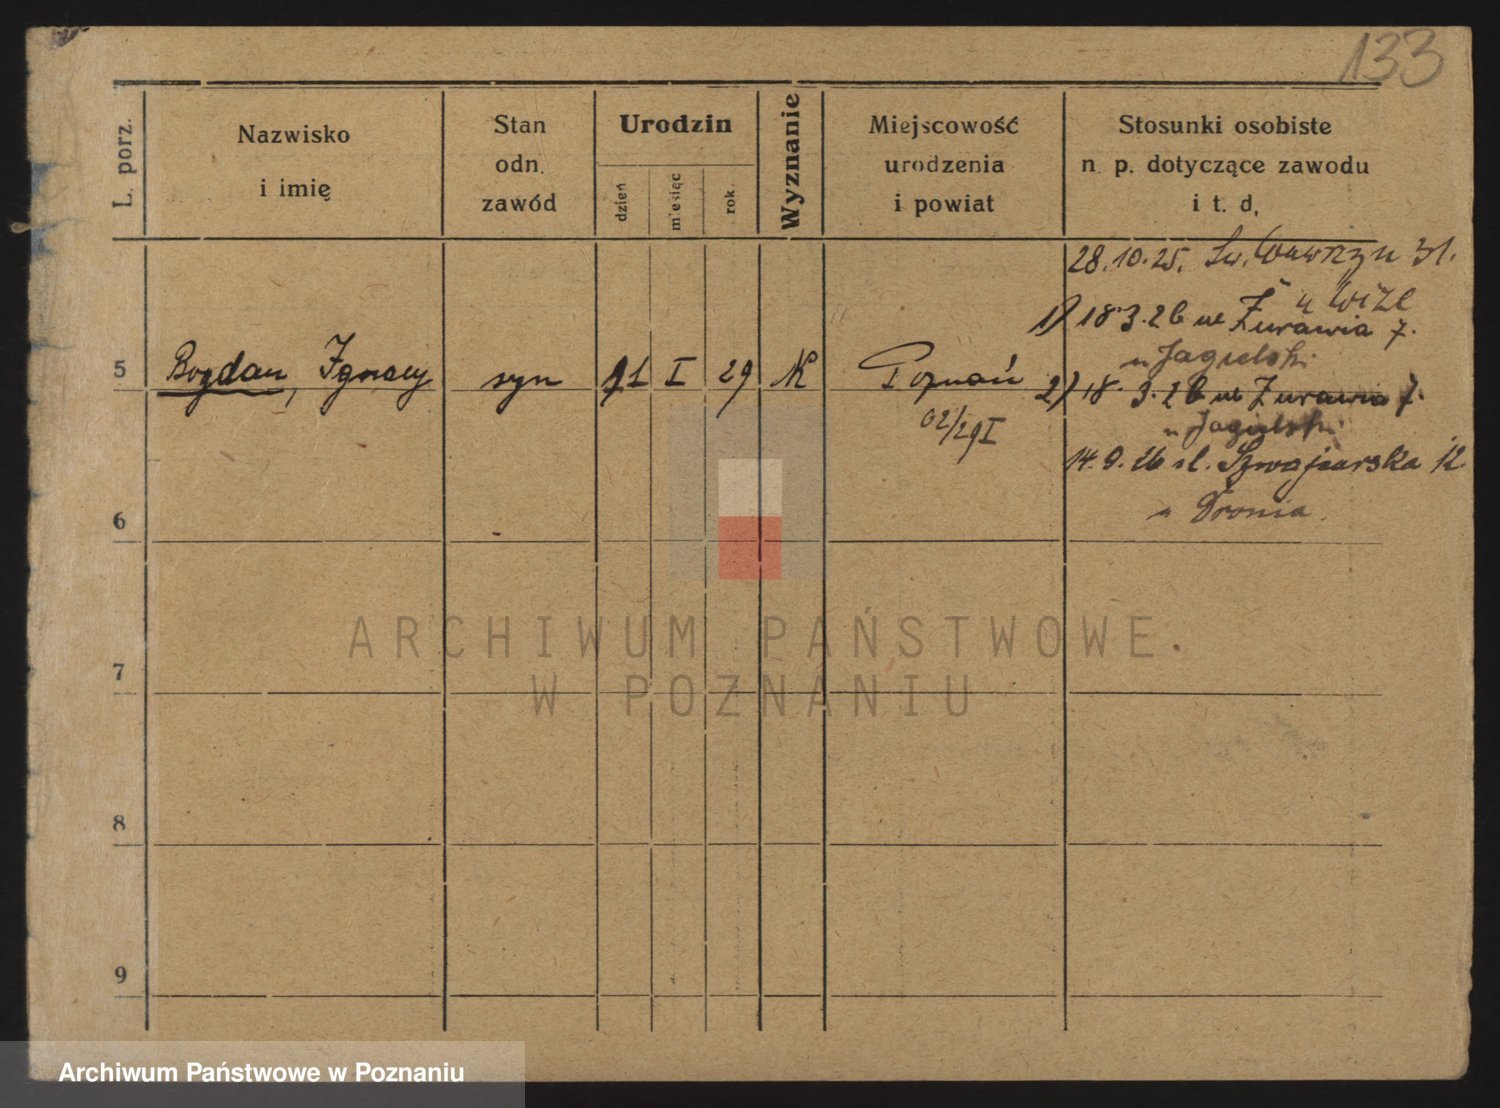 133
L. porz.
Nazwisko
i imię
Stan
odn.
zawód
Urodzin
dzień
miesiąc
rok.
Wyznanie
Miejscowość
urodzenia
i powiat
Stosunki osobiste
n. p. dotyczące zawodu
i t. d.
28.10.25. Św. Wawrzyn 31.
1) 18.3.26 ul Żurawia 7.
u Jagielski
5 Bogdan, Ignacy syn 21 I 29 K Poznań
2) 18. 3.26 ul Żurawia 7.
u Jagielski
02/29 I
14.9.26 ul. Szwajcarska 12
u Dronia
6
7
8
9
ARCHIWUM PAŃSTWOWE
W POZNANIU
Archiwum Państwowe w Poznaniu